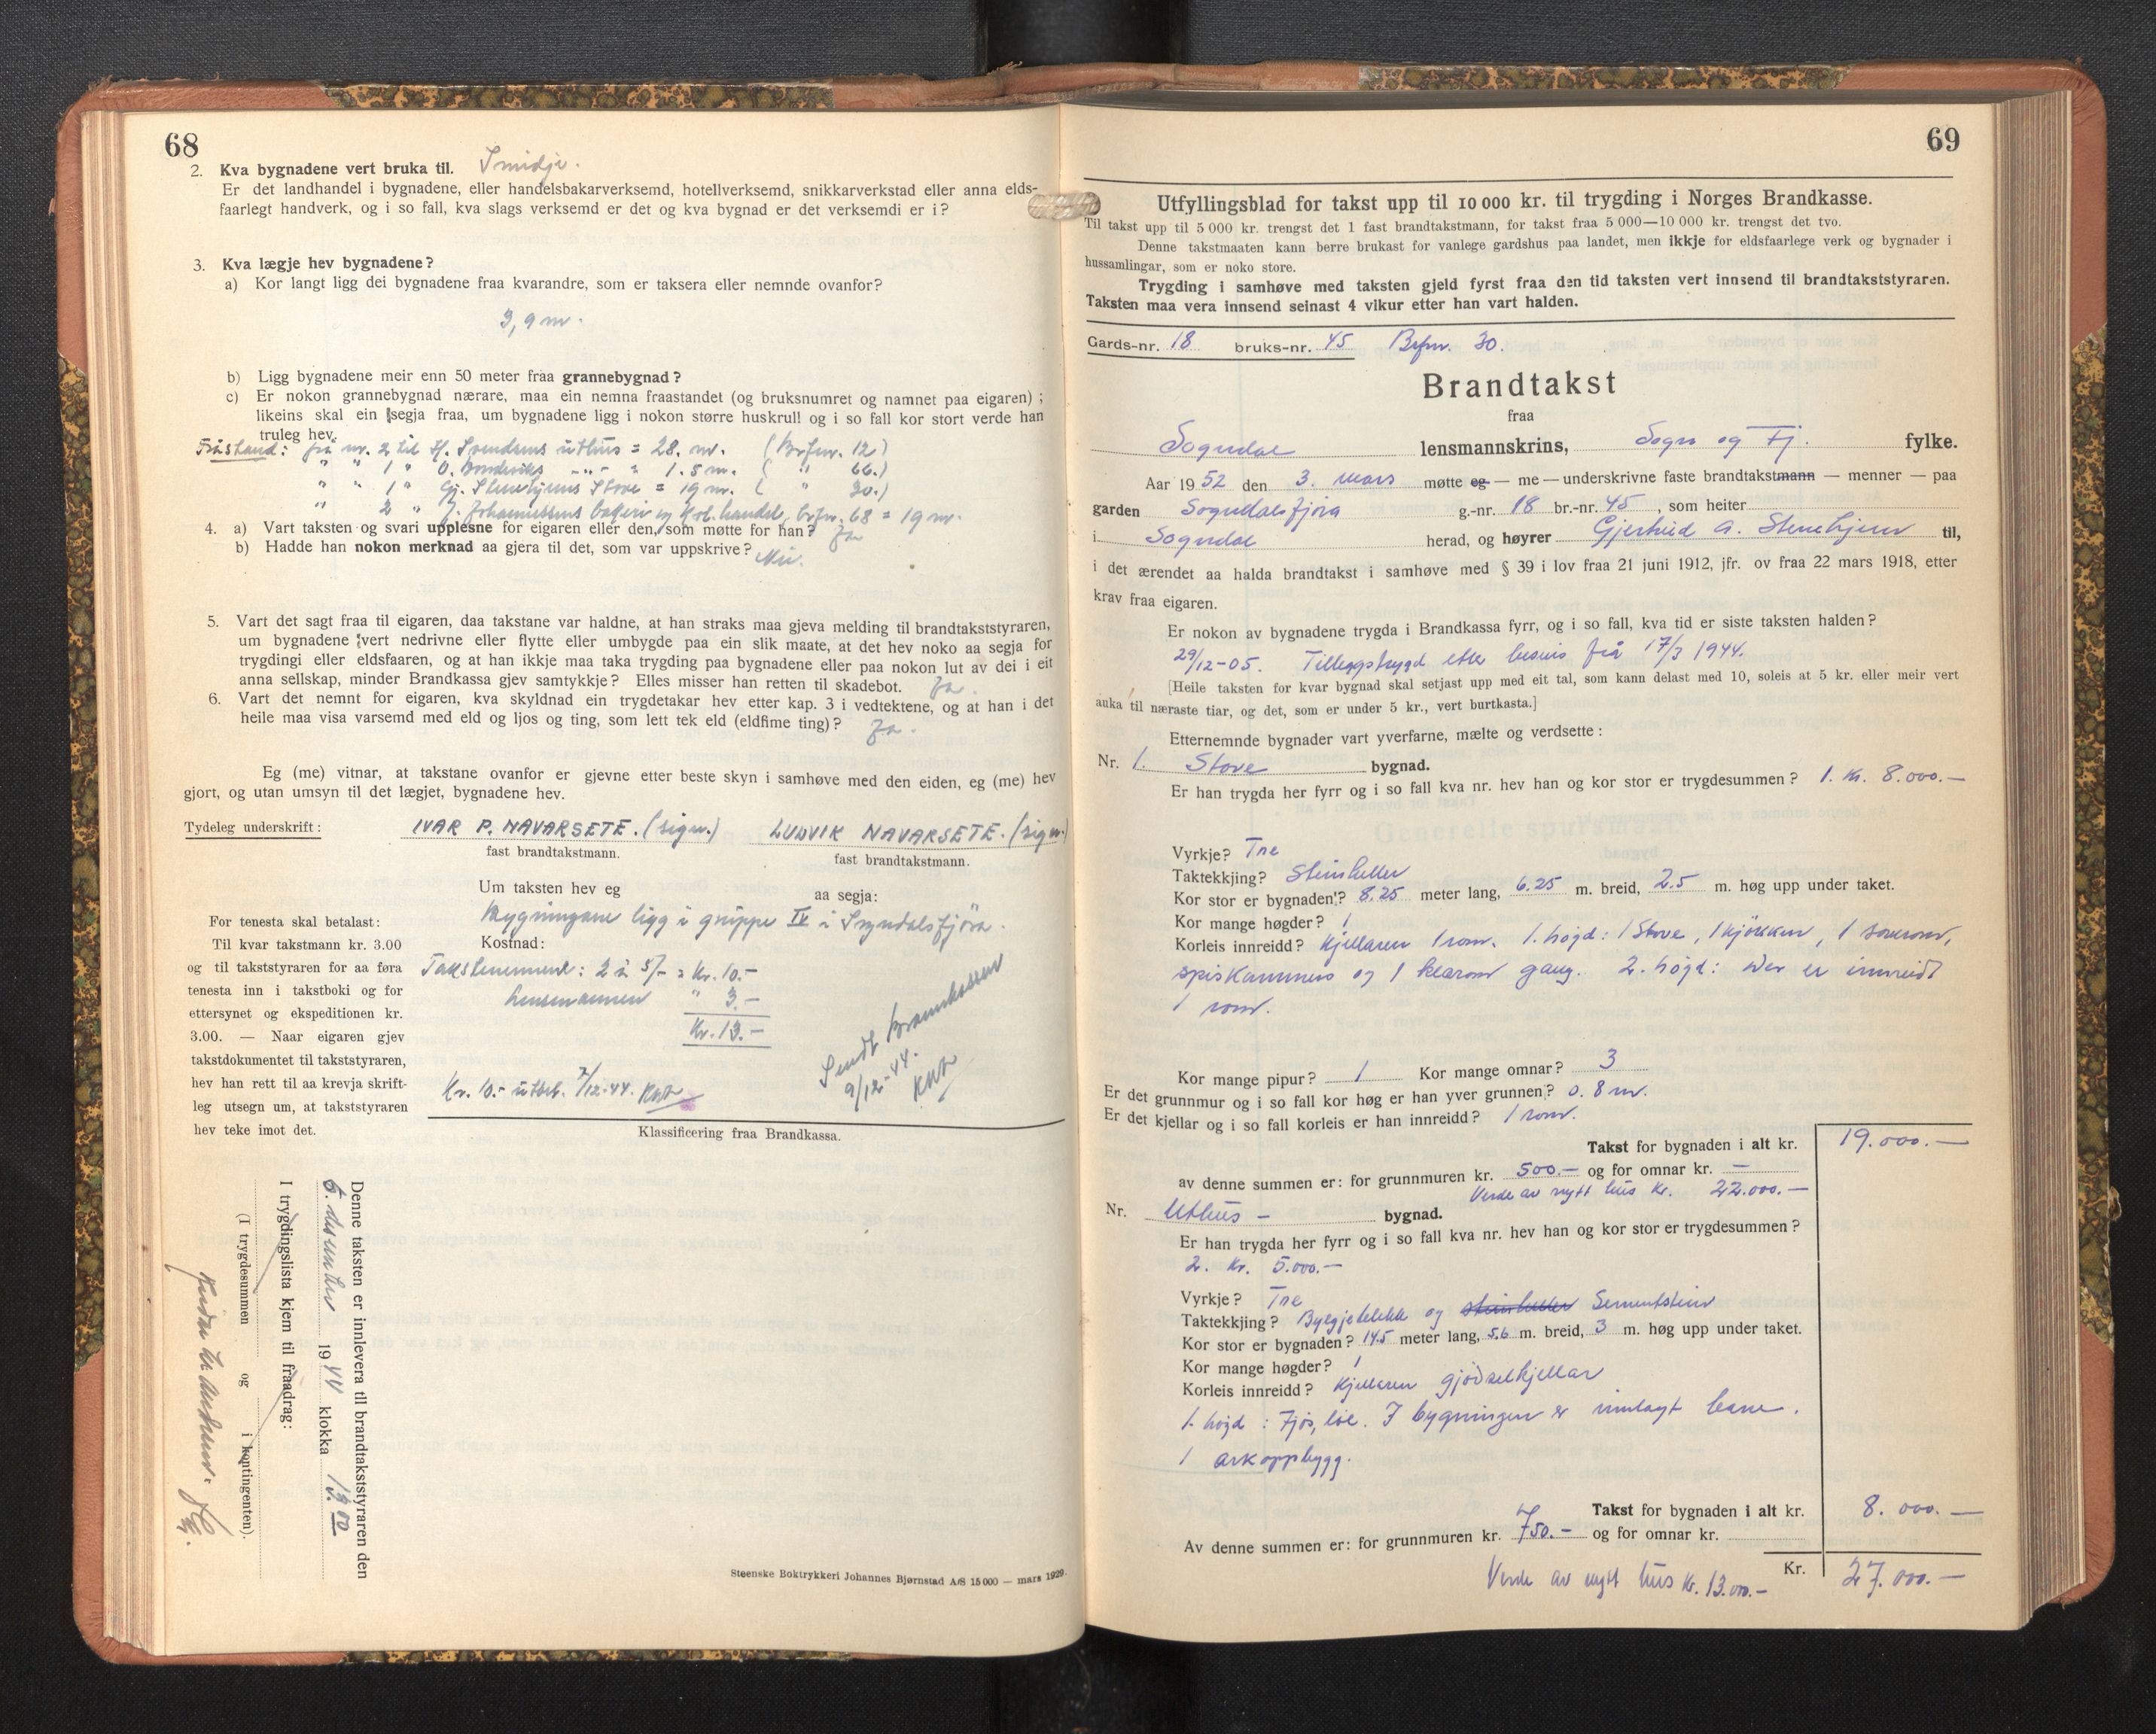 68
2. Kva bygnadene vert bruka til. Smidje.
Er det landhandel i bygnadene, eller handelsbakarverksemd, hotellverksemd, snikkarverkstad eller anna elds-
faarlegt handverk, og i so fall, kva slags verksemd er det og kva bygnad er det verksemdi er i?
3. Kva lægje hev bygnadene?
a) Kor langt ligg dei bygnadene fraa kvarandre, som er taksera eller nemnde ovanfor?
3,9 m.
b) Ligg bygnadene meir enn 50 meter fraa grannebygnad?
c) Er nokon grannebygnad nærare, maa ein nemna fraastandet (og bruksnumret og namnet paa eigaren);
likeins skal ein segja fraa, um bygnadene ligg i nokon større huskrull og i so fall kor stort verde han
truleg hev.
Fråstand: frå nr. 2 til Hj. Svendsens uthus = 28. m. (Brfnr. 12)
" " 1 " O. Bondeviks -"- = 1.5 m. ( " 66.)
" " 1 " Gj. Stenehjems Stove = 19 m. ( " 30.)
" 2 " J. Johannessens bakeri og kol.handel, brfnr. 68 = 19 m.
4. a) Vart taksten og svari upplesne for eigaren eller den, som møtte for han? Ja
b) Hadde han nokon merknad aa gjera til det, som var uppskrive? Nei.
5. Vart det sagt fraa til eigaren, daa takstane var haldne, at han straks maa gjeva melding til brandtakststyraren,
um bygnadene vert nedrivne eller flytte eller umbygde paa ein slik maate, at det hev noko aa segja for
trygdingi eller eldsfaaren, og at han ikkje maa taka trygding paa bygnadene eller paa nokon lut av dei i eit
anna sellskap, minder Brandkassa gjev samtykkje? Elles misser han retten til skadebot. Ja.
6. Vart det nemnt for eigaren, kva skyldnad ein trygdetakar hev etter kap. 3 i vedtektene, og at han i det
heile maa visa varsemd med eld og ljos og ting, som lett tek eld (eldfime ting)? Ja.
Eg (me) vitnar, at takstane ovanfor er gjevne etter beste skyn i samhøve med den eiden, eg (me) hev
gjort, og utan umsyn til det lægjet, bygnadene hev.
Tydeleg underskrift: IVAR P. NAVARSETE. (sign.) LUDVIK NAVARSETE. (sign.)
fast brandtakstmann. fast brandtakstmann.
Um taksten hev eg aa segja:
Bygningane ligg i gruppe IV i Sogndalsfjøra.
Kostnad:
Takstmennene: 2 à 5/- = Kr. 10.-
Lensmannen " 3.-
Kr. 13.-
Sendt Brannkassen
9/12-44.
Kr. 10.- utbet. 7/12-44.
For tenesta skal betalast:
Til kvar takstmann kr. 3.00
og til takststyraren for aa føra
tenesta inn i takstboki og for
ettersynet og ekspeditionen kr.
3.00. — Naar eigaren gjev
takstdokumentet til takststyraren,
hev han rett til aa krevja skrift-
leg utsegn um, at takststyraren
hev teke imot det.
Klassificering fraa Brandkassa.
Denne taksten er innlevera til brandtakststyraren den
5. desember 1944 klokka 13.00
I trygdingslista kjem til fraadrag:
(I trygdesummen og i kontingenten).
Steenske Boktrykkeri Johannes Bjørnstad A/S 15 000 — mars 1929.
69
Utfyllingsblad for takst upp til 10 000 kr. til trygding i Norges Brandkasse.
Til takst upp til 5 000 kr. trengst det 1 fast brandtakstmann, for takst fraa 5 000—10 000 kr. trengst det tvo.
Denne takstmaaten kann berre brukast for vanlege gardshus paa landet, men ikkje for eldsfaarlege verk og bygnader i
hussamlingar, som er noko store.
Trygding i samhøve med taksten gjeld fyrst fraa den tid taksten vert innsend til brandtakststyraren.
Taksten maa vera innsend seinast 4 vikur etter han vart halden.
Gards-nr. 18 bruks-nr. 45 Brfnr. 30.
Brandtakst
fraa
Sogndal lensmannskrins, Sogn og Fj. fylke.
Aar 1952 den 3. mars møtte eg — me — underskrivne faste brandtakstmann — menner — paa
garden Sogndalsfjøra g.-nr. 18 br.-nr. 45, som heiter
i Sogndal herad, og høyrer Gjertrud A. Stenehjem til,
i det ærendet aa halda brandtakst i samhøve med § 39 i lov fraa 21 juni 1912, jfr. ov fraa 22 mars 1918, etter
krav fraa eigaren.
Er nokon av bygnadene trygda i Brandkassa fyrr, og i so fall, kva tid er siste taksten halden?
29/12-05. Tilleggstrygd etter bevis frå 17/3 1944.
[Heile taksten for kvar bygnad skal setjast upp med eit tal, som kann delast med 10, soleis at 5 kr. eller meir vert
auka til næraste tiar, og det, som er under 5 kr., vert burtkasta.]
Etternemnde bygnader vart yverfarne, mælte og verdsette:
Nr. 1. Stove bygnad.
Er han trygda her fyrr og i so fall kva nr. hev han og kor stor er trygdesummen? 1. Kr. 8.000.-
Vyrkje? Tre
Taktekkjing? Steinheller
Kor stor er bygnaden? 8.25 meter lang, 6.25 m. breid, 2.5 m. høg upp under taket.
Kor mange høgder? 1
Korleis innreidd? Kjellaren 1 rom. 1. høgd: 1 Stove, 1 kjøkken, 1 soverom,
spiskammers og 1 klarom gang. 2. høgd: der er innreidt
1 rom.
Kor mange pipur? 1 Kor mange omnar? 3
Er det grunnmur og i so fall kor høg er han yver grunnen? 0.8 m.
Er det kjellar og i so fall korleis er han innreidd? 1 rom.
Takst for bygnaden i alt kr. 19.000.—
av denne summen er: for grunnmuren kr. 500.— og for omnar kr. —
Verde av nytt hus kr. 22.000.—
Nr. Uthus — bygnad.
Er han trygda her fyrr og i so fall kva nr. hev han og kor stor er trygdesummen?
2. Kr. 5.000.—
Vyrkje? Tre
Taktekkjing? Bylgjeblekk og steinheller Sementstein
Kor stor er bygnaden? 14.5 meter lang, 5.6 m. breid, 3 m. høg upp under taket.
Kor mange høgder? 1
Korleis innreidd? Kjellaren gjødselkjellar
1. høgd: Fjøs, løe. I bygningen er innlagt
1 arkoppbygg.
Takst for bygnaden i alt kr. 8.000.—
Av denne summen er: for grunnmuren kr. 750.— og for omnar kr.
Kr. 27.000.—
Verde av nytt hus kr. 13.000.—